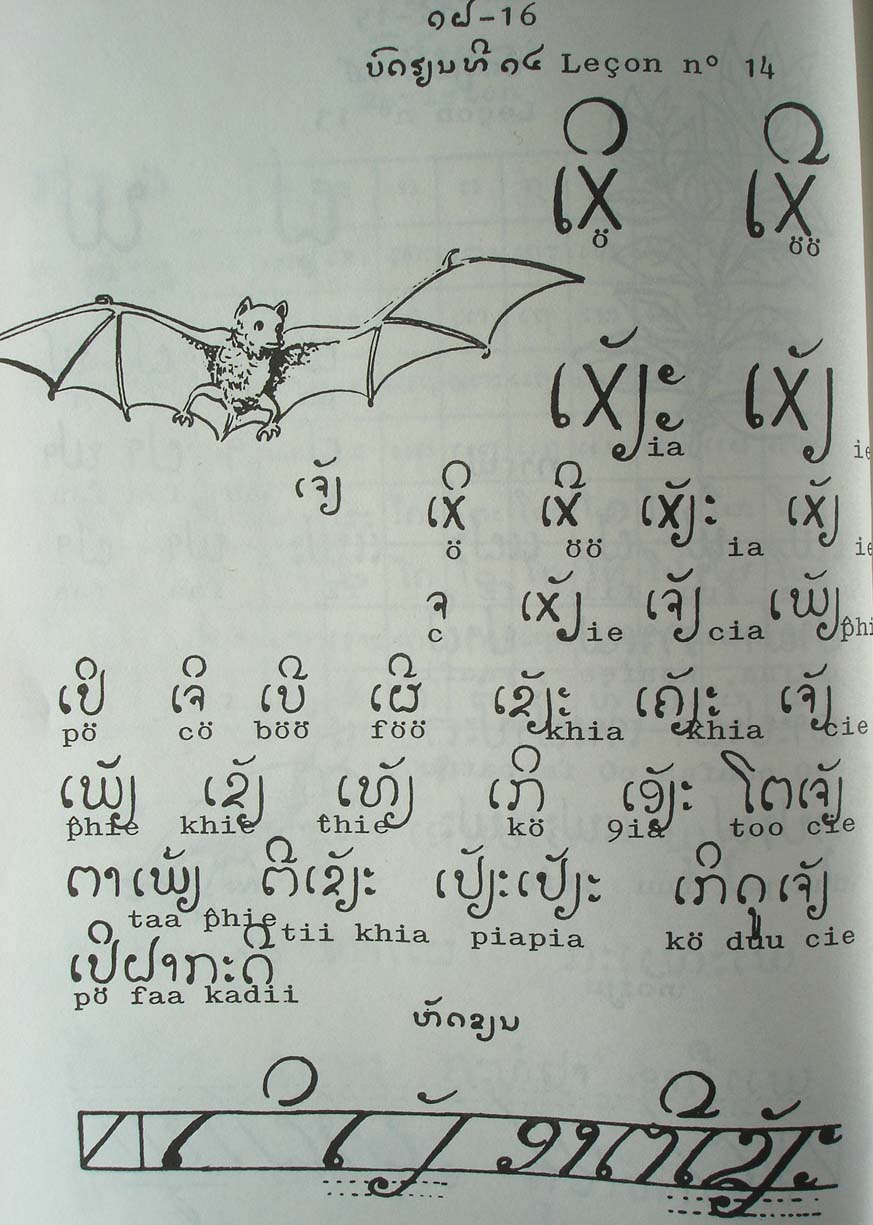 ໑ຝ-16
ບົດຮຽນທີ ໑໔ Leçon nº 14
ເxິ ເxີ
ö öö
ເxັຽະ ເxັຽ
ia ie
ເຈັຽ ເxິ ເxີ ເxັຽະ ເxັຽ
ö öö ia ie
ຈ ເxັຽ ເຈັຽ ເພັຽ
c ie cia p̂hi
ເປິ ເຈິ ເບີ ເຜີ ເຂັຽະ ເຄັຽະ ເຈັຽ
pö cö böö föö khia k̂hia cie
ເພັຽ ເຂັຽ ເທັຽ ເກິ ເງັຽະ ໂຕເຈັຽ
p̂hie khie t̂hie kö 9ia too cie
ຕາເພັຽ ຕີເຂັຽະ ເປັຽະເປັຽະ ເກິດູເຈັຽ
taa p̂hie tii khia piapia kö duu cie
ເປິຝາກະດີ
pö faa kadii
ຫັດຂຽນ